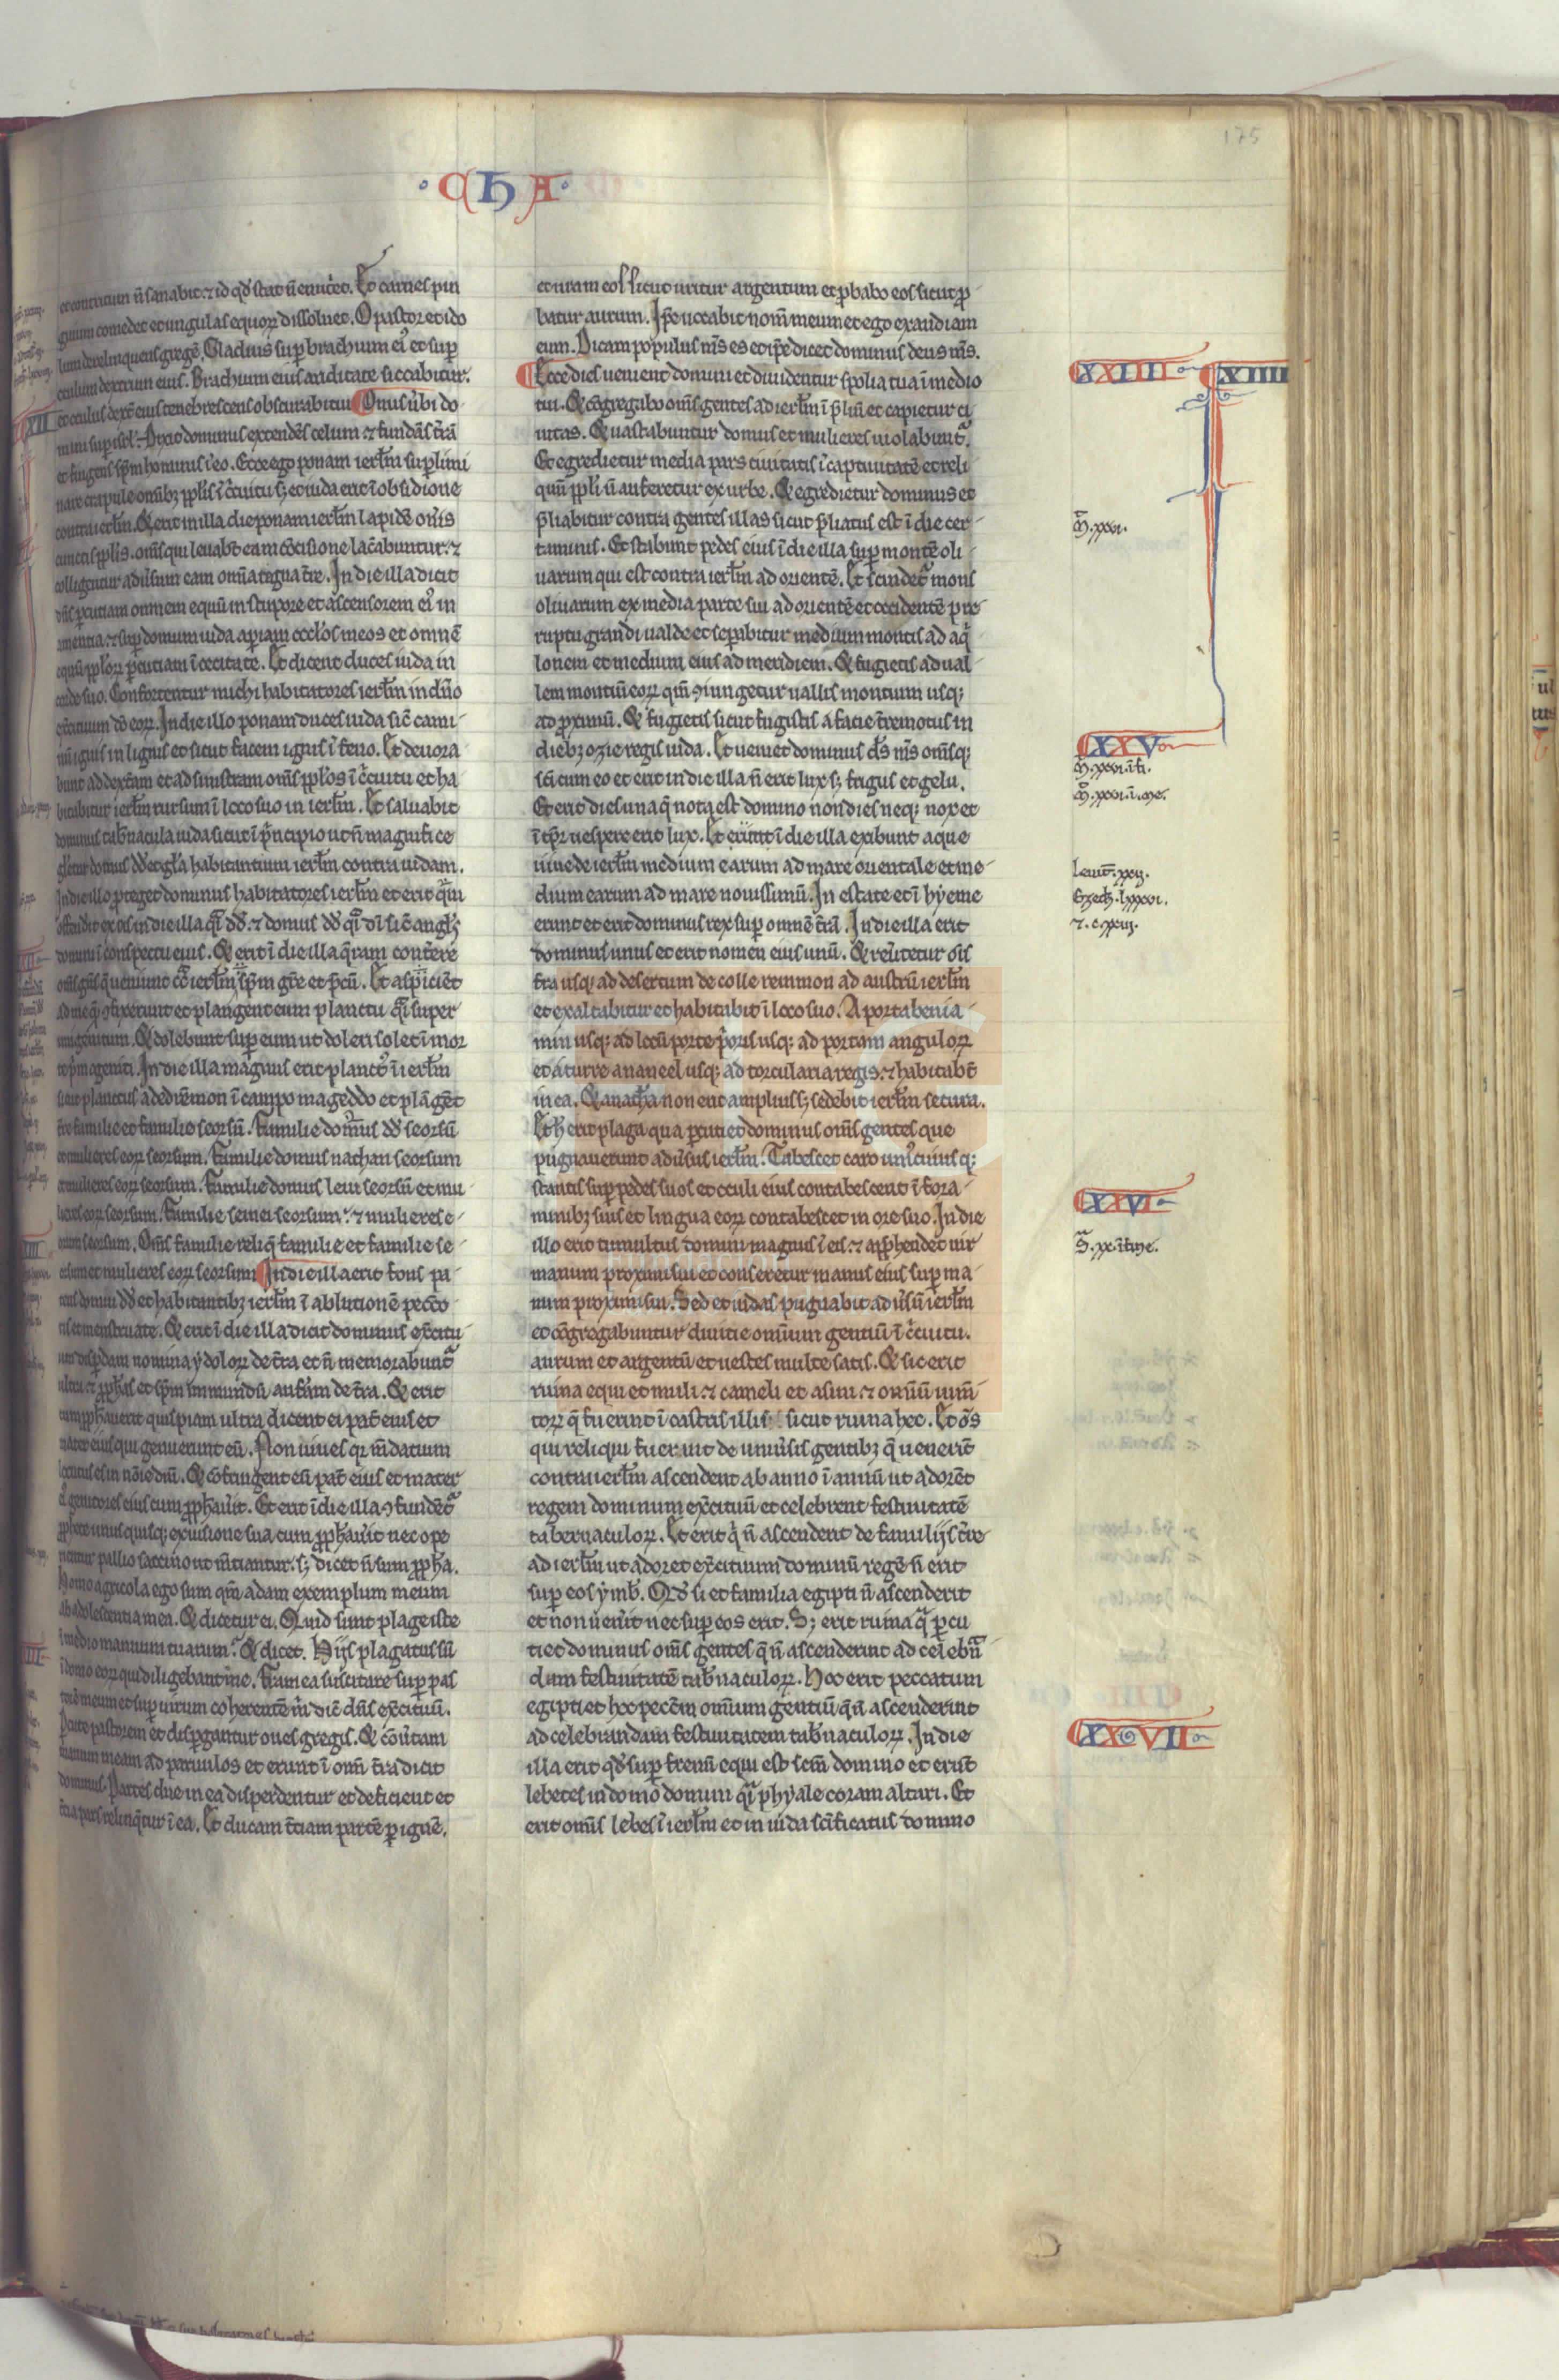 175
·CHA·
et contritum n̄ sanabit ⁊ id qđ stat n̄ enut͛et. Et carnes pin
guium comedet et ungulas equoꝝ dissoluet. O pastor et ido
lum derelinquens gregē. Gladius suꝑ brachium eiꝰ et suꝑ
oculum dextrum eius. Brachium eius ariditate siccabitur.
et oculus dext̄ eius tenebrescens obscurabitur Onus ūbi do
mini suꝑ isrl̄. Dixit dominus extendēs celum ⁊ fundās t̄rā
et fingens sp̄m hominis ī eo. Ecce ego ponam ierl̄m suꝑ limi
nare crapule omībꝫ ppl̄is ī c̄cuitu sꝫ et iuda erit ī obsidione
contra ierl̄m. Et erit in illa die ponam ierl̄m lapidē on̄is
cunctis ppl̄is. om̄s qui leuabt̄ eam cōcisione lac̄abuntur. ⁊
colligentur adūsum eam omīa regna tr̄e. In die illa dicit
dn̄s ꝑcutiam omnem equū in stupore et ascensorem eiꝰ in
amentia. ⁊ suꝑ domum iuda apiam oclos meos et omnē
equū ppl̄oꝝ ꝑcutiam ī cecitate. Et dicent duces iuda in
corde suo. Confortentur michi habitatores ierl̄m in dn̄o
exc̄ituum dō eoꝝ. In die illo ponam duces iuda sic̄ cami-
nū ignis in lignis et sicut facem ignis ī feno. Et deuora
bunt ad dext̄am et ad sinistram om̄s ppl̄os ī c̄cuitu et ha
bitabitur ierl̄m rursum ī loco suo in ierl̄m. Et saluabit
dominus tab̄nacula iuda sicut ī p̄ncipio ut n̄ magnifice
gl̄etur domus dd̄ et gl̄a habitantium ierl̄m contra iudam.
In die illo ꝓteget dominus habitatores ierl̄m et erit qui
offenderit ex eis in die illa q͛i dd̄. ⁊ domus dd̄ q͛i di sic̄ angl̄s
domini ī conspectu eius. Et erit ī die illa q̄ram cont̄ere
om̄s gn̄s q̄ ueniunt c̄ ierl̄m sp̄m gr̄e et p̄cū. Et aspiciēt
ad me q̄ 9fixerunt et plangent eum planctu q͛i super
unigenitum. Et dolebunt suꝑ eum ut doleri solet ī mor
te p̄mogeniti. In die illa magnus erit planctꝰ ī ierl̄m
sicut planctus adedrēmon ī campo mageddo et plāgēt
tr̄e familie et familie seorsū. Familie domus dd̄ seorsū
et mulieres eoꝝ seorsum. Familie domus nathan seorsum
et mulieres eoꝝ seorsum. Familie domus leui seorsū et mu
lieres eoꝝ seorsum. Familie semei seorsum. ⁊ mulieres e-
orum seorsum. Om̄s familie reliq̄ familie et familie se-
orsum et mulieres eoꝝ seorsum In die illa erit fons pa
tens domui dd̄ et habitantibꝫ ierl̄m ī ablutionē pecc̄o
ris et menstruate. Et erit ī die illa dicit dominus exc̄itu
um disꝑdam nomina ẏdoloꝝ de t̄ra et n̄ memorabunt͛
ultra ⁊ ꝓph̄as et sp̄m immundū aufam de t̄ra. Et erit
cum ꝓph̄auerit quispiam ultra dicent ei pat̄ eius et
mater eius qui genuerunt eū. Non uiues qꝛ m̄datium
locutus es in nōie dn̄i. Et c̄figent eū pat̄ eius et mater
eiꝰ genitores eius cum ꝓph̄aūit. Et erit ī die illa 9fundēt͛
ꝓphete unusquisqꝫ ex uisione sua cum ꝓph̄aūit nec ope
rientur pallio saccino ut m̄tiantur. sꝫ dicet n̄ sum ꝓph̄a.
Homo agricola ego sum qm̄ adam exemplum meum
ab adolescentia mea. Et dicetur ei. Quid sunt plage iste
ī medio manuum tuarum. Et dicet. Hijs plagatus sū
ī domo eoꝝ qui diligebant me. Framea suscitare suꝑ pas
torē meum et suꝑ uirum coherentē m̄ dic̄ dn̄s exc̄ituū.
Percute pastorem et disꝑgantur oues gregis. Et cōūtam
manum meam ad paruulos et erunt ī omī t̄ra dicit
dominus. Partes due in ea disperdentur et deficient et
t̄cia pars relinq̄tur ī ea. Et ducam t̄ciam partē ꝑ ignē.
et uram eos sicut uritur argentum et ꝓbabo eos sicut ꝓ-
batur aurum. Ip̄e uocabit nom̄ meum et ego exaudiam
eum. Dicam populus m̄s es et ip̄e dicet dominus deus m̄s.
Ecce dies uenient domini et diuidentur spolia tua ī medio
tui. Et cōgregabo om̄s gentes ad ierl̄m ī p̄liū et capietur ci
uitas. Et uastabuntur domus et mulieres uiolabunt͛.
Et egredietur media pars ciuitatis ī captiuitatē et reli
quū ppl̄i n̄ auferetur ex urbe. Et egredietur dominus et
p̄liabitur contra gentes illas sicut p̄liatus est ī die cer-
taminis. Et stabunt pedes eius ī die illa suꝑ montē oli-
uarum qui est contra ierl̄m ad orientē. Et scindet͛ mons
oliuarum ex media parte sui ad orientē et occidentē pre-
ruptu grandi ualde et seꝑabitur medium montis ad aq̇
lonem et medium eius ad meridiem. Et fugietis ad ual-
lem montiū eoꝝ qm̄ 9iungetur uallis montium usqꝫ
ad ꝓximū. Et fugietis sicut fugistis a facie t̄remotus in
diebꝫ ozie regis iuda. Et ueniet dominus ds̄ m̄s om̄sqꝫ
sc̄i cum eo et erit in die illa n̄ erit lux sꝫ frigus et gelu.
Et erit dies una q̄ nota est domino non dies neqꝫ nox et
ī tp̄r uespere erit lux. Et erunt ī die illa exibunt aque
uiue de ierl̄m medium earum ad mare orientale et me-
dium earum ad mare nouissimū. In estate et ī hẏeme
erunt et erit dominus rex suꝑ omnē t̄rā. In die illa erit
dominus unus et erit nomen eius unū. Et reūtetur ois
t̄ra usqꝫ ad desertum de colle remmon ad austrū ierl̄m
et exaltabitur et habitabit ī loco suo. A porta benia-
min usqꝫ ad locū porte p̄oris usqꝫ ad portam anguloꝝ
et a turre ananeel usqꝫ ad torcularia regis. ⁊ habitabt̄
in ea. Et anath̄a non erit amplius sꝫ sedebit ierl̄m secura.
Et h erit plaga qua ꝑcutiet dominus om̄s gentes que
pugnauerunt adūsus ierl̄m. Tabescet caro uniꝰcuiusqꝫ
stantis suꝑ pedes suos et oculi eius contabescent ī fora-
minibꝫ suis et lingua eoꝝ contabescet in ore suo. In die
illo erit tumultus domini magnus ī eis. ⁊ apprehendet uir
manum proximi sui et conseretur manus eius suꝑ ma-
num proximi sui. Sed et iudas pugnabit adūsū ierl̄m
et cōgregabuntur diuitie omīum gentiū ī c̄cuitu.
aurum et argentū et uestes multe satis. Et sic erit
ruina equi et muli ⁊ cameli et asini ⁊ omīū ium̄-
toꝝ q̄ fuerint ī castris illis sicut ruina hec. Et oēs
qui reliqui fuerint de uniūsis gentibꝫ q̄ uenerūt
contra ierl̄m ascendent ab anno ī annū ut adorēt
regem dominum exc̄ituū et celebrent festiuitatē
tabernaculoꝝ. Et erit q̇ n̄ ascenderit de familijs tr̄e
ad ierl̄m ut adoret exc̄ituum dominū regē n̄ erit
suꝑ eos ẏmb̄. Qđ si et familia egipti n̄ ascenderit
et non uen̄it nec suꝑ eos erit. Sꝫ erit ruina q͛ ꝑcu
tiet dominus om̄s gentes q̄ n̄ ascenderint ad celebrā
dam festiuitatē tab̄naculoꝝ. Hoc erit peccatum
egipti et hoc pecc̄m omīum gentiū q̄ n̄ ascenderint
ad celebrandam festiuitatem tab̄naculoꝝ. In die
illa erit qđ suꝑ frenū equi est sc̄m domino et erūt
lebetes in domo domini q͛i phẏale coram altari. Et
erit om̄s lebes ī ierl̄m et in iuda sc̄ificatus domino
XXIIII XIIII
XXV
XXVI
XXVII